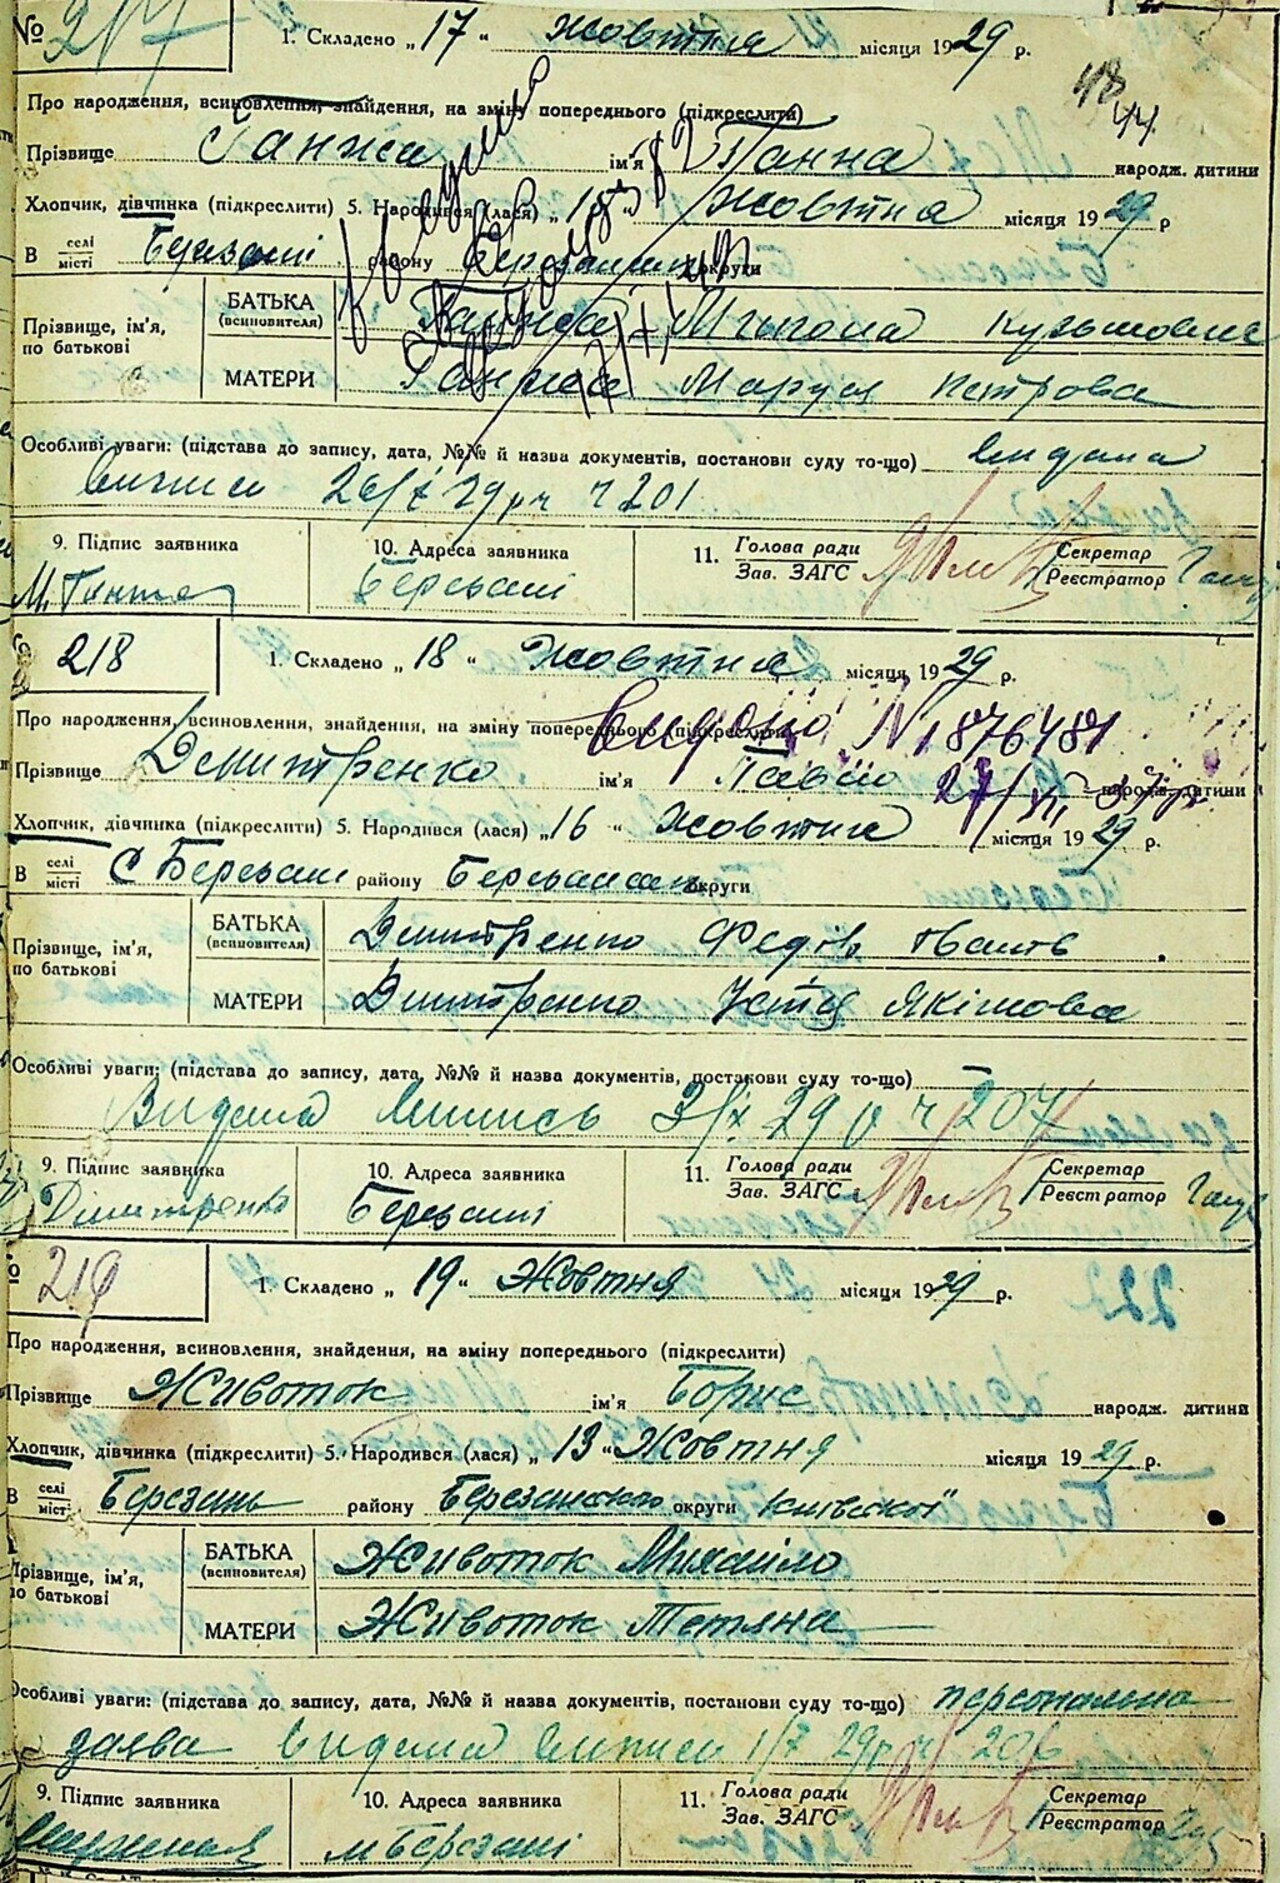 № 217 1. Складено „ 17 “ Жовтня місяця 1929 р.
Про народження, всиновлення, знайдення, на зміну попереднього (підкреслити)
Прізвище Ганжа ім'я Ганна народж. дитини
Хлопчик, дівчинка (підкреслити) 5. Народився (лася) „ “ Жовтня місяця 1929 р
В селі місті Березані району округи
Прізвище, ім'я, по батькові
БАТЬКА (всиновителя) Ганжа Микола Кузьмович
МАТЕРИ Ганжа Маруся Петрова
Особливі уваги: (підстава до запису, дата, №№ й назва документів, постанови суду то-що) видана
виписи 29р ч 201
9. Підпис заявника 10. Адреса заявника 11. Голова ради Зав. ЗАГС Секретар Реєстратор
М. Ганжа Березані
№ 218 1. Складено „ 18 “ Жовтня місяця 1929 р.
Про народження, всиновлення, знайдення, на зміну попереднього (підкреслити)
видано N 1876481
Прізвище Демитренко ім'я Павло народж. дитини
Хлопчик, дівчинка (підкреслити) 5. Народився (лася) „ 16 “ Жовтня місяця 1929 р.
В селі місті С Березані району округи
Прізвище, ім'я, по батькові
БАТЬКА (всиновителя) Дмитренко Федір
МАТЕРИ Дмитренко Устя Якімова
Особливі уваги: (підстава до запису, дата, №№ й назва документів, постанови суду то-що)
Видана випись 29 р ч 207
9. Підпис заявника 10. Адреса заявника 11. Голова ради Зав. ЗАГС Секретар Реєстратор
Дмитренко Березані
№ 219 1. Складено „ 19 “ Жовтня місяця 1929 р.
Про народження, всиновлення, знайдення, на зміну попереднього (підкреслити)
Прізвище Животок ім'я Борис народж. дитини
Хлопчик, дівчинка (підкреслити) 5. Народився (лася) „ 13 “ Жовтня місяця 1929 р.
В селі місті Березань району Березанського округи Київської
Прізвище, ім'я, по батькові
БАТЬКА (всиновителя) Животок Михайло
МАТЕРИ Животок Тетяна
Особливі уваги: (підстава до запису, дата, №№ й назва документів, постанови суду то-що) персональна
заява видана виписи 29р ч 206
9. Підпис заявника 10. Адреса заявника 11. Голова ради Зав. ЗАГС Секретар Реєстратор
м Березані